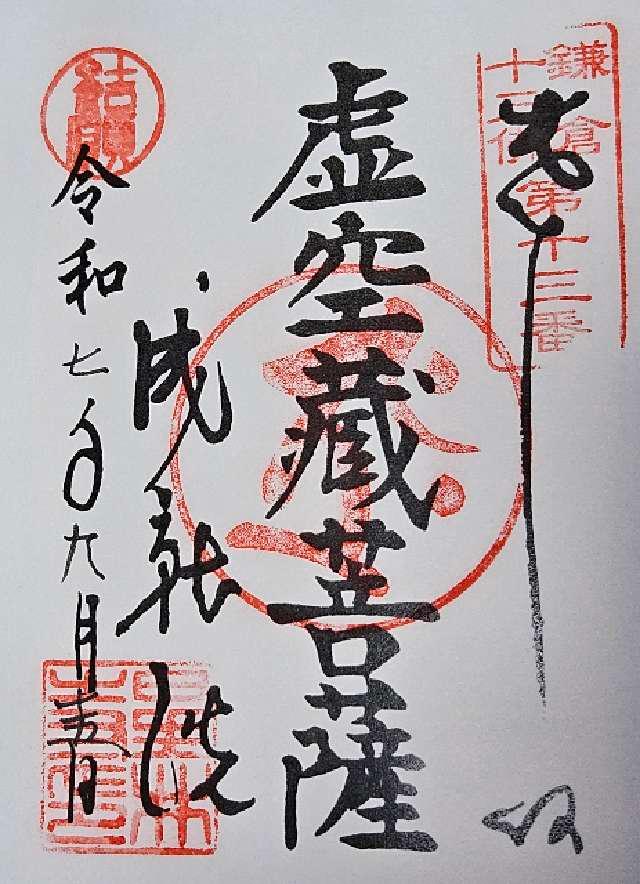 鎌倉
十三佛
第十三番
奉拝
虚空蔵菩薩
成就院
結願
令和七年九月